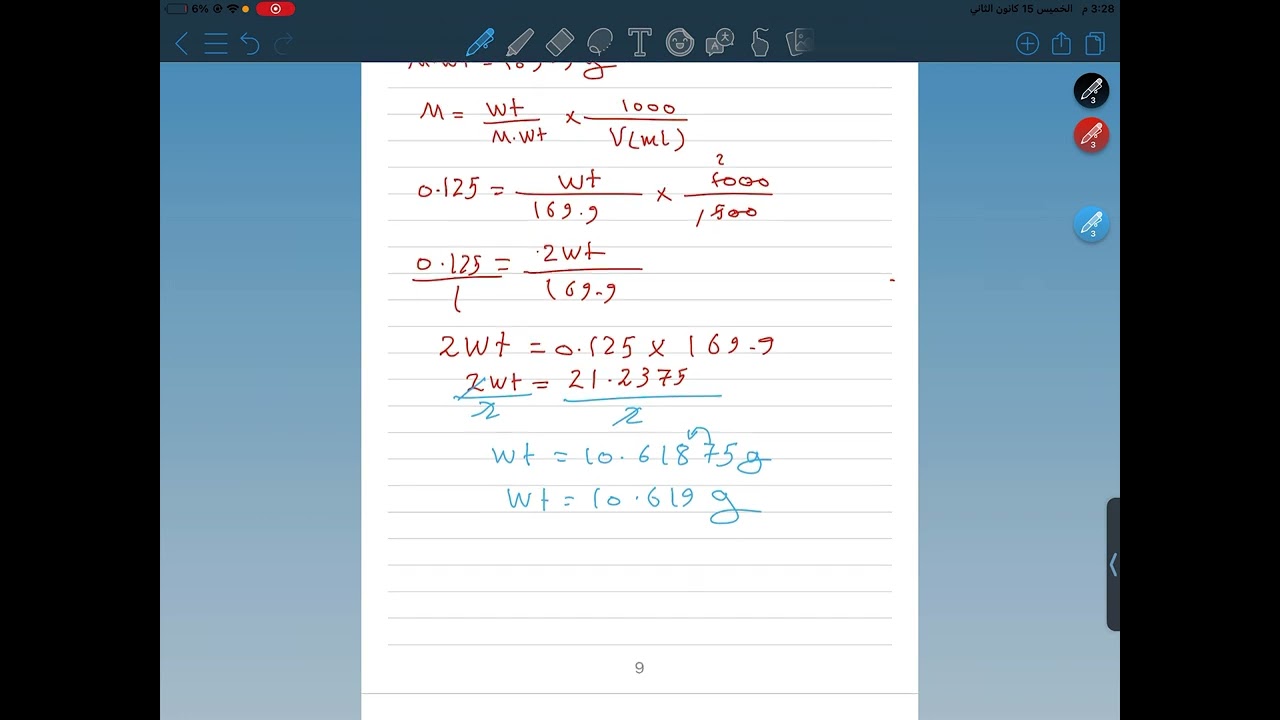 6%
3:28 م الخميس 15 كانون الثاني
M.wt = 169.9 g
M = wt / M.wt × 1000 / V(ml)
0.125 = wt / 169.9 × 1000 / 500
2
1
0.125 / 1 = 2wt / 169.9
2wt = 0.125 × 169.9
2wt / 2 = 21.2375 / 2
wt = 10.61875 g
wt = 10.619 g
9
3
3
3